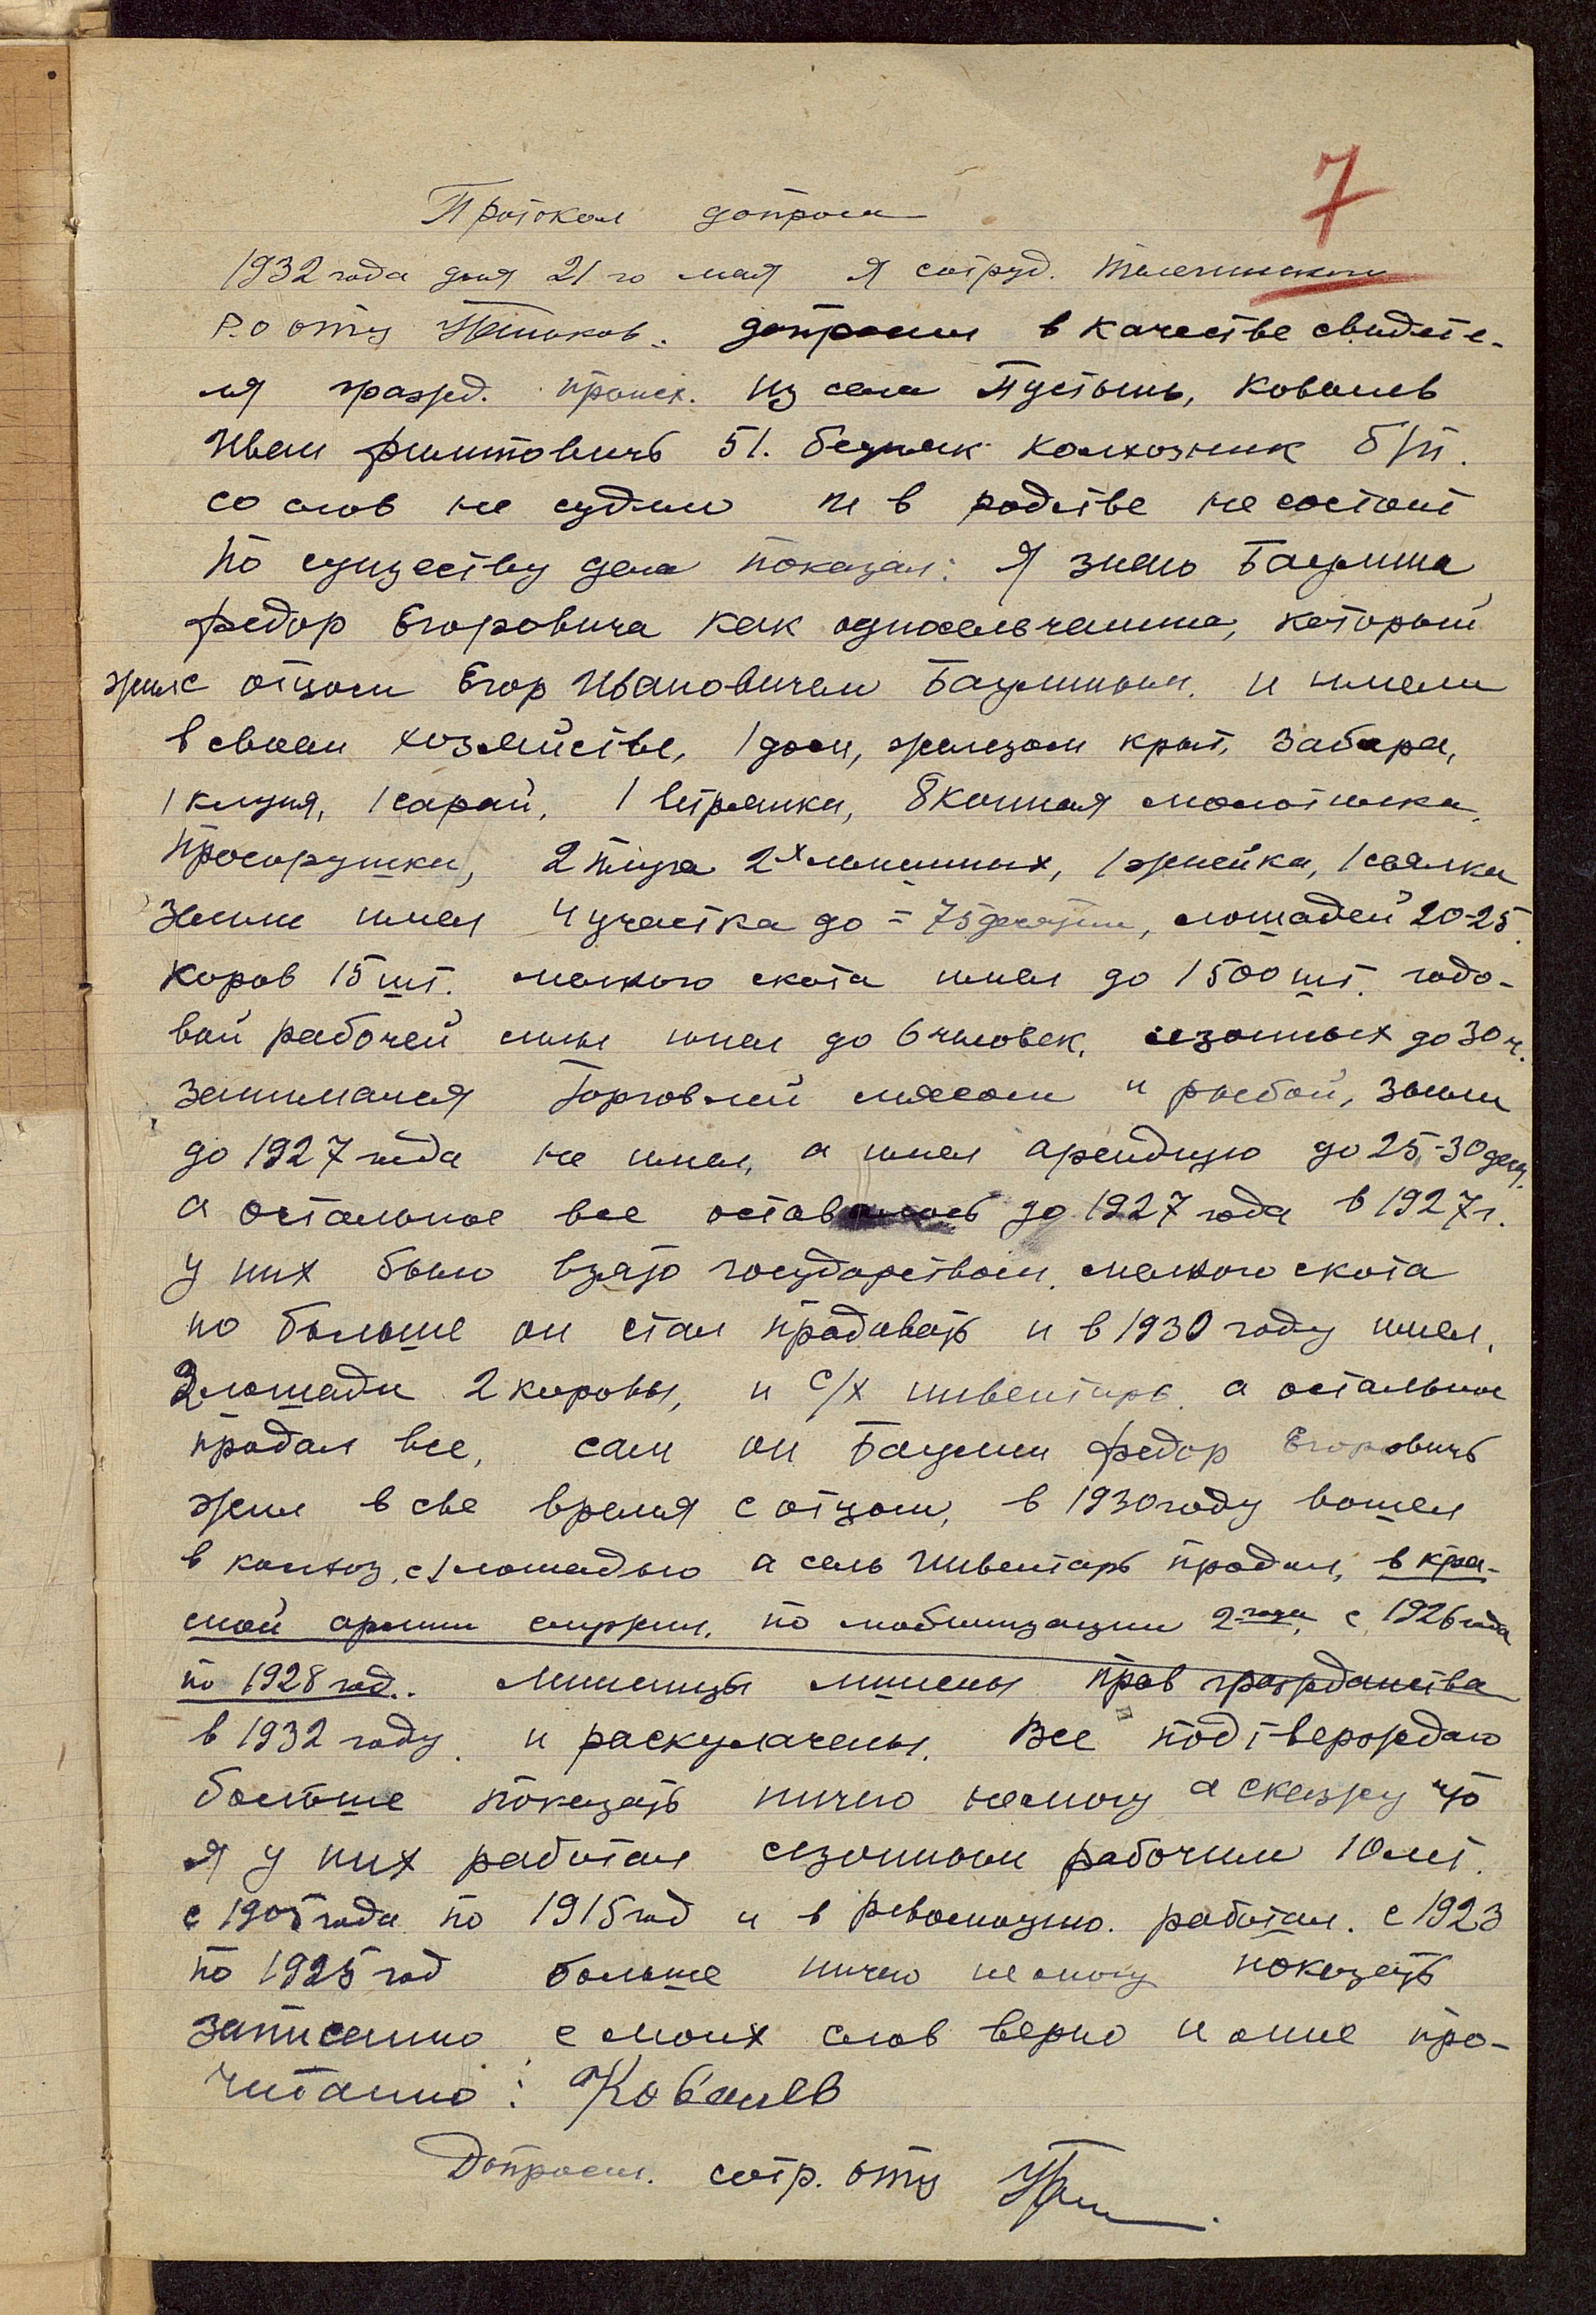 7
Протокол допроса
1932 года дня 21 го мая я сотруд.
Р.О ОГПУ допросил в качестве свидете-
ля гражд. происх. из села Пустынь, Ковалев
Иван Филиповичь 51. бедняк колхозник б/п.
со слов не судим и в родстве не состоит
по существу дела показал: Я знаю Бацулина
Федор Егоровича как односельчанина, который
жил с отцом Егор Ивановичем Бацулиным. и имели
в своем хозяйстве, 1 дом, железом крыт, забора,
1 клуня, 1 сарай, 1 ветрянки, 8 конная молотилка,
просорушки, 2 плуга 2х лемешных, 1 жнейка, 1 сеялки
земли имел 4 участка до = 75 десятин, лошадей 20-25.
коров 15 шт. мелкого скота имел до 1500 шт. годо-
вой рабочей силы имел до 6 человек. сезонных до 30 ч.
занимался торговлей мясом и рыбой, земли
до 1927 года не имел, а имел арендную до 25-30 деся.
а остальное все оставалось до 1927 года в 1927 г.
у них было взято государством. мелкого скота
но больше он стал продавать и в 1930 году имел.
2 лошади 2 коровы, и с/х инвентарь. а остальное
продал все, сам он Бацулин Федор Егоровичь
жил в све время с отцом, в 1930 году вошел
в колхоз, с 1 лошадью а сель инвентарь продал, в кра-
сной армии служил. по мобилизации 2 года, с 1926 года
по 1928 год. лишенцы лишены прав гражданства
в 1932 году. и раскулачены. Все подтверждаю
больше показать ничего немогу а скажу что
я у них работал сезонным рабочим 10 лет.
с 1905 года по 1915 год и в революцию. работал. с 1923
по 1925 год больше ничего не могу показать
записанно с моих слов верно и мне про-
читанно: Ковалев
Допросил. сотр. ОГПУ